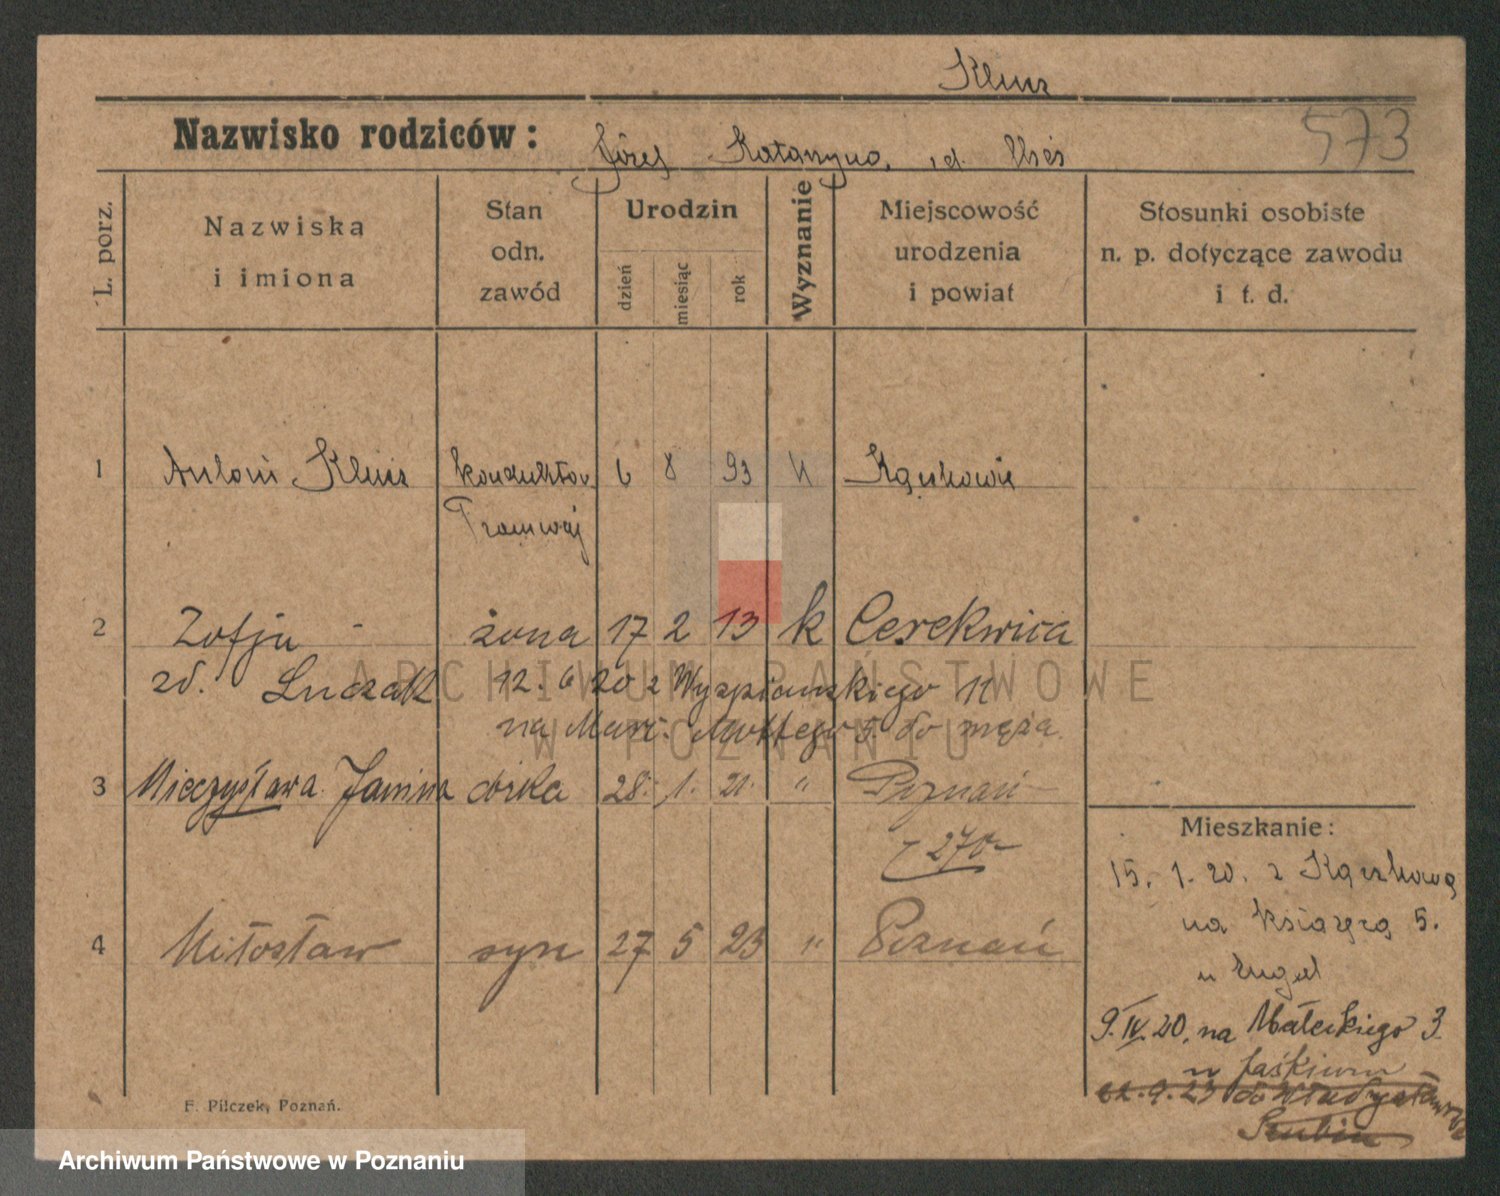 Kluis
573
Nazwisko rodziców: Józef Katarzyna,
L. porz.
Nazwiska i imiona
Stan odn. zawód
Urodzin
dzień miesiąc rok
Wyznanie
Miejscowość urodzenia i powiat
Stosunki osobiste n. p. dotyczące zawodu i t. d.
1 Antoni Kluis konduktor 6 8 93 k
Tramwaj
2 Zofja żona 17 2 13 k Cerekwica
zd. Luczak 12. 6 20 z Wyspianskiego 11
na Marc. Mottego 5. do męża
3 Mieczysława Janina córka 28. 1. 21. " Poznań
270
4 Miłosław syn 27 5 23 " Poznań
Mieszkanie:
15. 1. 20. z
na 5.
u
9. IV. 20. na Małeckiego 3
u
22. 9. 23 do
Szubin
F. Pilczek, Poznań.
ARCHIWUM PAŃSTWOWE
W POZNANIU
Archiwum Państwowe w Poznaniu